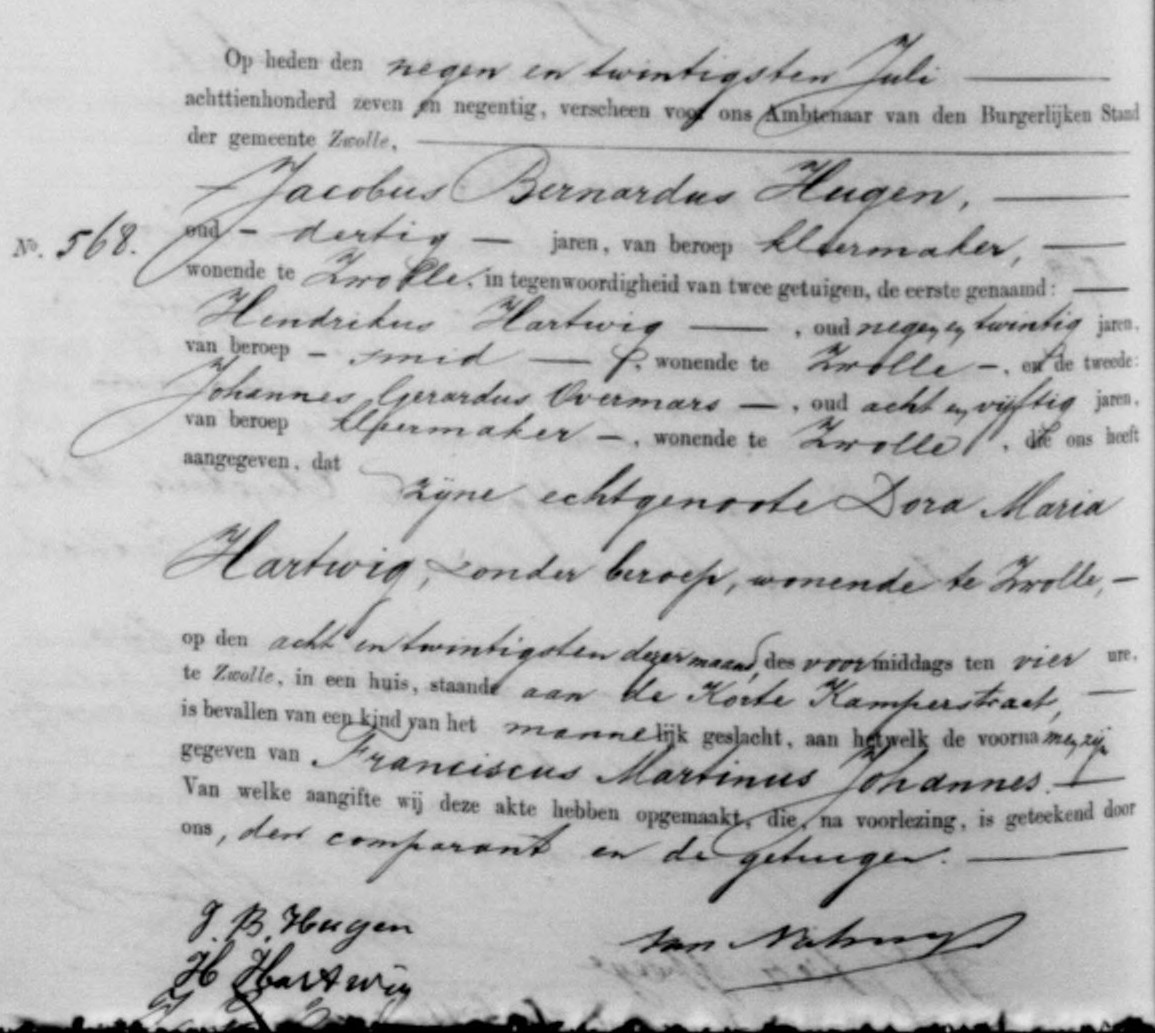 Op heden den negen en twintigsten Juli
achttienhonderd zeven en negentig, verscheen voor ons Ambtenaar van den Burgerlijken Stand
der gemeente Zwolle,
Jacobus Bernardus Hugen,
No. 568. oud - dertig - jaren, van beroep kleermaker,
wonende te Zwolle, in tegenwoordigheid van twee getuigen, de eerste genaamd:
Hendrikus Hartwig - , oud negen en twintig jaren,
van beroep - smid - , wonende te Zwolle -, en de tweede:
Johannes Gerardus Overmars - , oud acht en vijftig jaren,
van beroep kleermaker -, wonende te Zwolle, die ons heeft
aangegeven, dat zijne echtgenoote Dora Maria
Hartwig, zonder beroep, wonende te Zwolle, -
op den acht en twintigsten dezer maand, des voormiddags ten vier ure,
te Zwolle, in een huis, staande aan de Korte Kamperstraat,
is bevallen van een kind van het mannelijk geslacht, aan hetwelk de voornamen zijn
gegeven van Franciscus Martinus Johannes.
Van welke aangifte wij deze akte hebben opgemaakt, die, na voorlezing, is geteekend door
ons, den comparant en de getuigen.
J. B. Hugen
H Hartwig